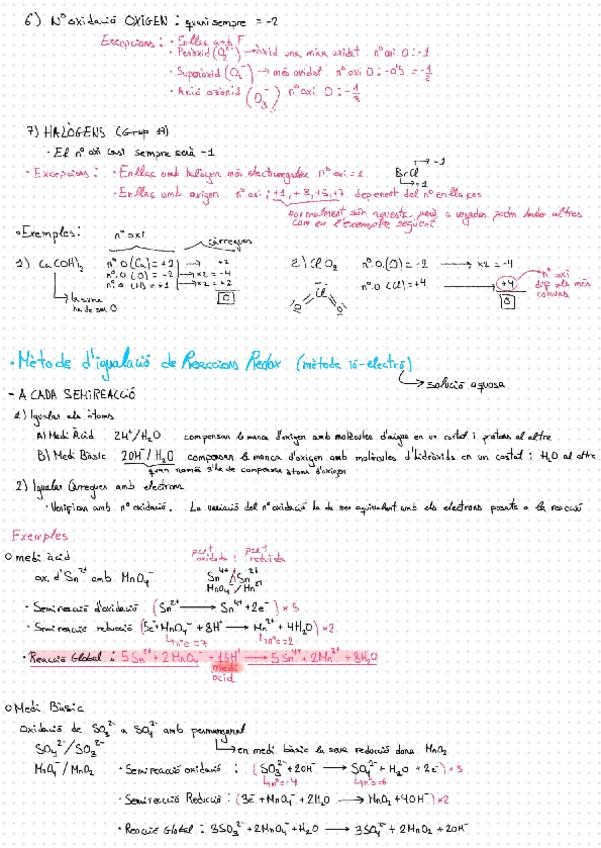 6) Nº oxidació OXIGEN : quasi sempre = -2
Excepcions : · Enllaç amb F
· Peròxid (O₂²⁻) → òxid una mica oxidat nº oxi O : -1
· Superòxid (O₂⁻) → més oxidat nº oxi O : -0'5 = -1/2
· Anió ozònid (O₃⁻) nº oxi O : -1/3
7) HALÒGENS (Grup 17)
· El nº oxi casi sempre serà -1
· Excepcions : · Enllaç amb halogen més electronegatiu nº oxi = 1. BrCl → -1 → +1
· Enllaç amb oxigen nº oxi : +1, +3, +5, +7 depenent del nº enllaços
normalment són aquests, però a vegades poden haber altres com en l'exemple següent
· Exemples : nº oxi càrregues
1) Ca(OH)₂ nº O (Ca) = +1 → +2
nº O (O) = -2 → x2 = -4
nº O (H) = +1 → x2 = +2
→ la suma ha de ser 0 0
2) ClO₂ nº O. (O) = -2 → x2 = -4
nº O (Cl) = +4 +4
0
nº oxi dif als més comuns
O Cl O
· Mètode d'igualació de Reaccions Redox (mètode ió-electró)
→ solució aquosa
- A CADA SEMIREACCIÓ
1) Igualar els àtoms
A) Medi Àcid 2H⁺/H₂O compensar la manca d'oxigen amb molècules d'aigua en un costat i protons al altre
B) Medi Bàsic 2OH⁻/H₂O compensar la manca d'oxigen amb molècules d'hidròxids en un costat i H₂O al altre
quan només s'ha de compensar àtoms d'oxigen
2) Igualar Càrregues amb electrons
· Verificar amb nº oxidació. La variació del nº oxidació ha de ser equivalent amb els electrons posats a la reacció
Exemples
○ medi àcid
part oxidada | part reduïda
ox. d'Sn²⁺ amb MnO₄⁻ Sn⁴⁺/Sn²⁺
MnO₄⁻/Mn²⁺
· Semireacció d'oxidació (Sn²⁺ → Sn⁴⁺ + 2e⁻) × 5
· Semireacció reducció (5e⁻ + MnO₄⁻ + 8H⁺ → Mn²⁺ + 4H₂O) × 2
→ nº o = 7 → nº o = 2
· Reacció Global : 5Sn²⁺ + 2MnO₄⁻ + 16H⁺ → 5Sn⁴⁺ + 2Mn²⁺ + 8H₂O
medi àcid
○ Medi Bàsic
Oxidació de SO₃²⁻ a SO₄²⁻ amb permanganat
→ en medi bàsic la seva reducció dona MnO₂
SO₄²⁻/SO₃²⁻
MnO₄⁻/MnO₂ · Semireacció oxidació : (SO₃²⁻ + 2OH⁻ → SO₄²⁻ + H₂O + 2e⁻) × 3
→ nº o = 4 → nº o = 6
· Semireacció Reducció : (3e⁻ + MnO₄⁻ + 2H₂O → MnO₂ + 4OH⁻) × 2
· Reacció Global : 3SO₃²⁻ + 2MnO₄⁻ + H₂O → 3SO₄²⁻ + 2MnO₂ + 2OH⁻